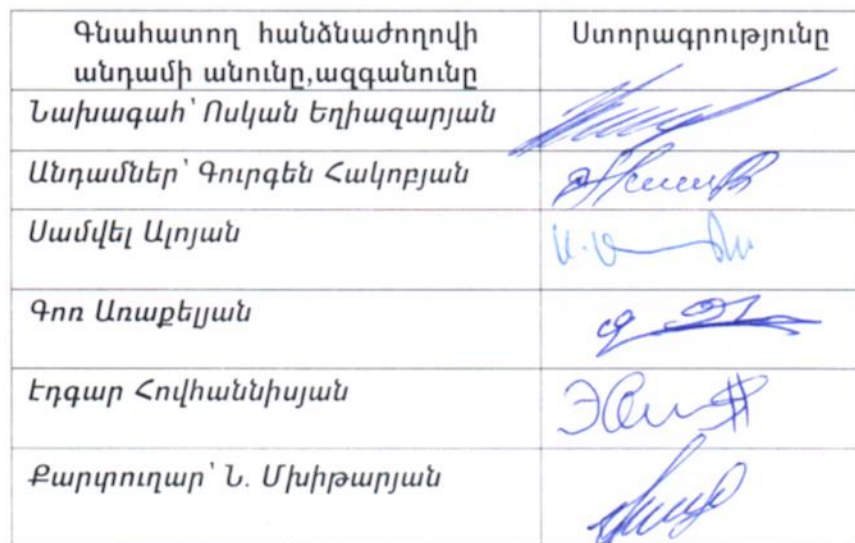 Գնահատող հանձնաժողովի Ստորագրությունը
անդամի անունը,ազգանունը
Նախագահ՝ Ոսկան Եղիազարյան
Անդամներ՝ Գուրգեն Հակոբյան
Սամվել Ալոյան
Գոռ Առաքելյան
Էդգար Հովհաննիսյան
Քարտուղար՝ Ն. Մխիթարյան